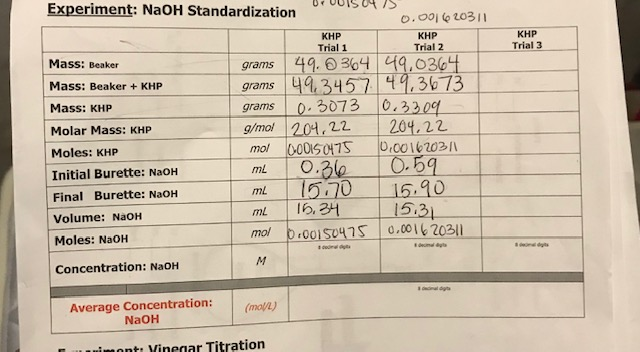 Experiment: NaOH Standardization
0.00150475
0.001620311
KHP KHP KHP
Trial 1 Trial 2 Trial 3
Mass: Beaker grams 49.0364 49.0364
Mass: Beaker + KHP grams 49.3457 49.3673
Mass: KHP grams 0.3073 0.3309
Molar Mass: KHP g/mol 204.22 204.22
Moles: KHP mol 0.00150475 0.001620311
Initial Burette: NaOH mL 0.36 0.59
Final Burette: NaOH mL 15.70 15.90
Volume: NaOH mL 15.34 15.31
Moles: NaOH mol 0.00150475 0.001620311
8 decimal digits 8 decimal digits 8 decimal digits
Concentration: NaOH M
8 decimal digits
Average Concentration: (mol/L)
NaOH
Experiment: Vinegar Titration